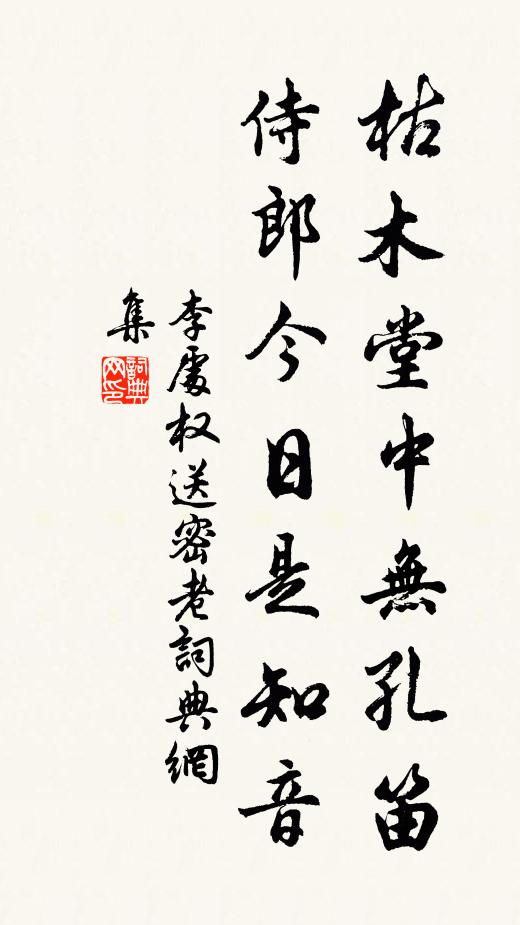 枯木堂中無孔笛
侍郎今日是知音
李處权送密老詞典網
集
詞典网印